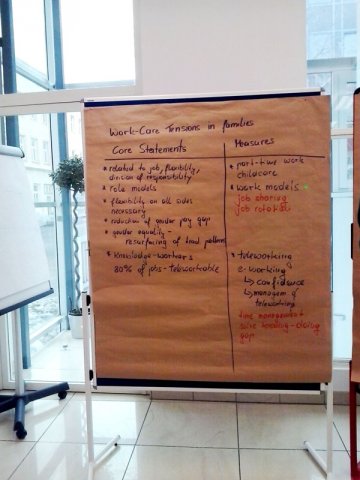 Work-Care Tensions in families
Core Statements
* related to job, flexibility,
division of responsibility
* role models
* flexibility on all sides
necessary
* reduction of gender pay gap
* gender equality -
resurfacing of trad patterns
* Knowledge-workers
80% of jobs - teleworkable
Measures
* part-time work
childcare
* work models
job sharing
job rotation
* teleworking
e-working
↳ confidence
↳ managem of
teleworking
time management
solve knowing-doing
gap